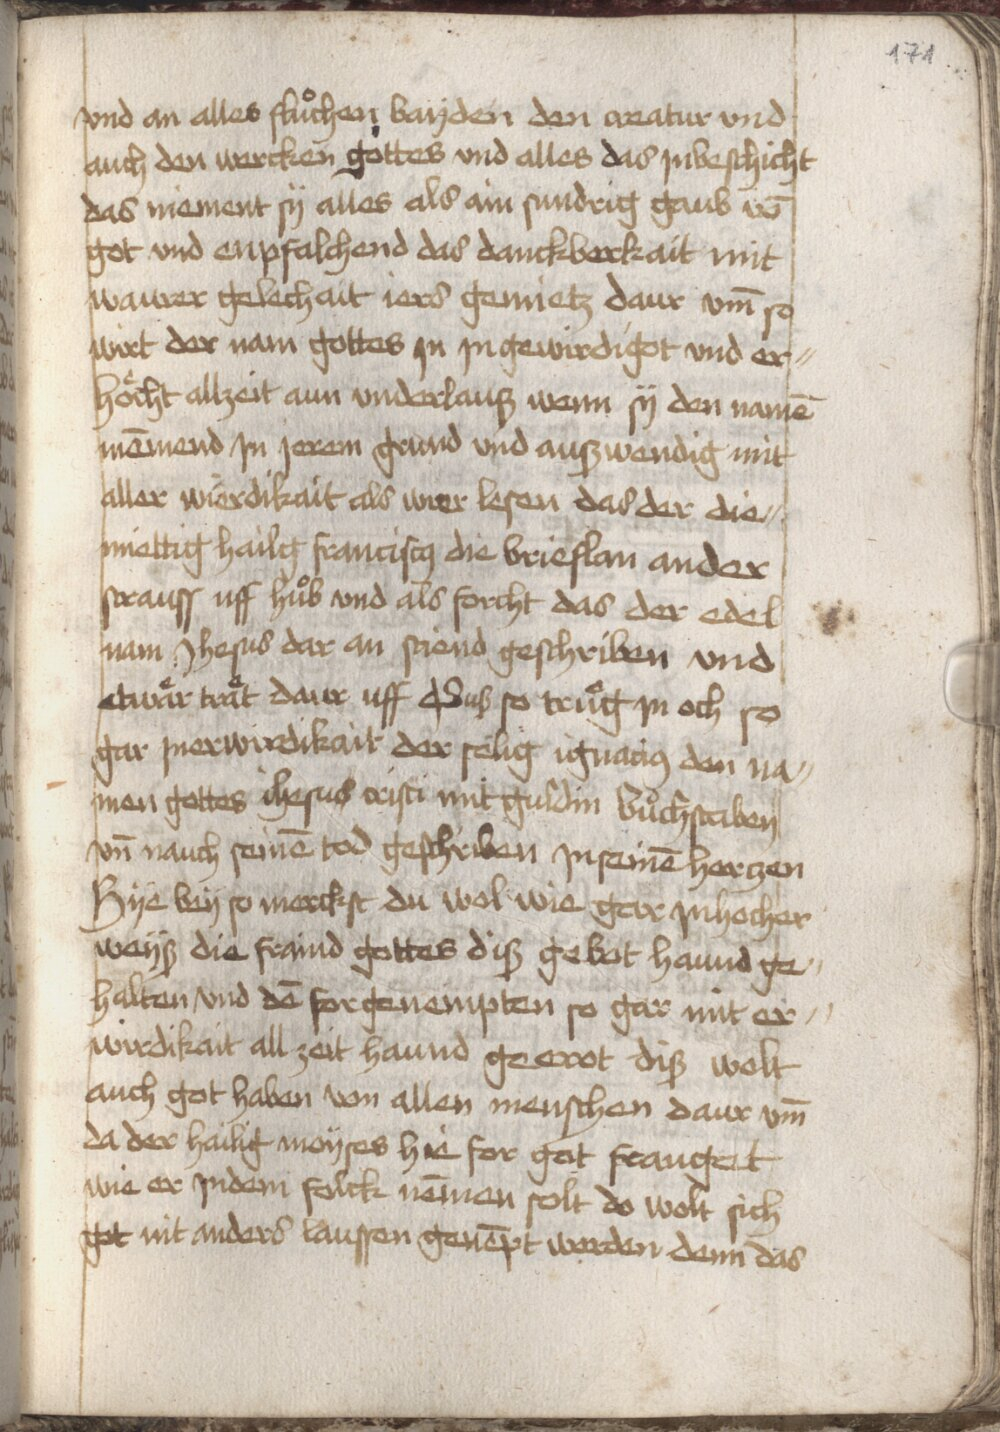 171
vnd an alles flůchen bayden den creatur vnd
auch den wercken gottes vnd alles das jnbeschicht
das niement sÿ alles als ain sundrig gaub vō
got vnd enpfalchend das danckberkait mit
waurer gelechait iers gemietz daur vm̄ so
wirt der nam gottes jn jngewirdigot vnd er〃
höcht allzeit aun vnderlauß wenn sÿ den namē
nēmend jn jerem grund vnd außwendig mit
aller wierdikait als wier lesen das der die〃
miettig hailg franciscꝰ die brieflan an der
strauss uff hůb vnd als forcht das der edel
nam Jhesus dar an stiend geschriben vnd
etwär trät daur uff Suß so trůg jn och so
gar jnerwirdikait der selig ignaciꝰ den na〃
men gottes ihesus cristi mit guldin bůchstaben
vn̄ nauch seinē tod geschriben jn seinē hertzen
Hÿe beÿ so merckst du wol wie gar jnhocher
weÿß die fraind gottes diß gebot haund ge〃
halten vnd dē forgenempten so gar mit er〃
wirdikait all zeit haund geerot diß wolt
auch got haben von allen menschen daur vm̄
da der hailig moÿses hie for got frauget
wie er jndem folck nēmen solt do wolt sich
got nit anders laussen genēpt werden denn das